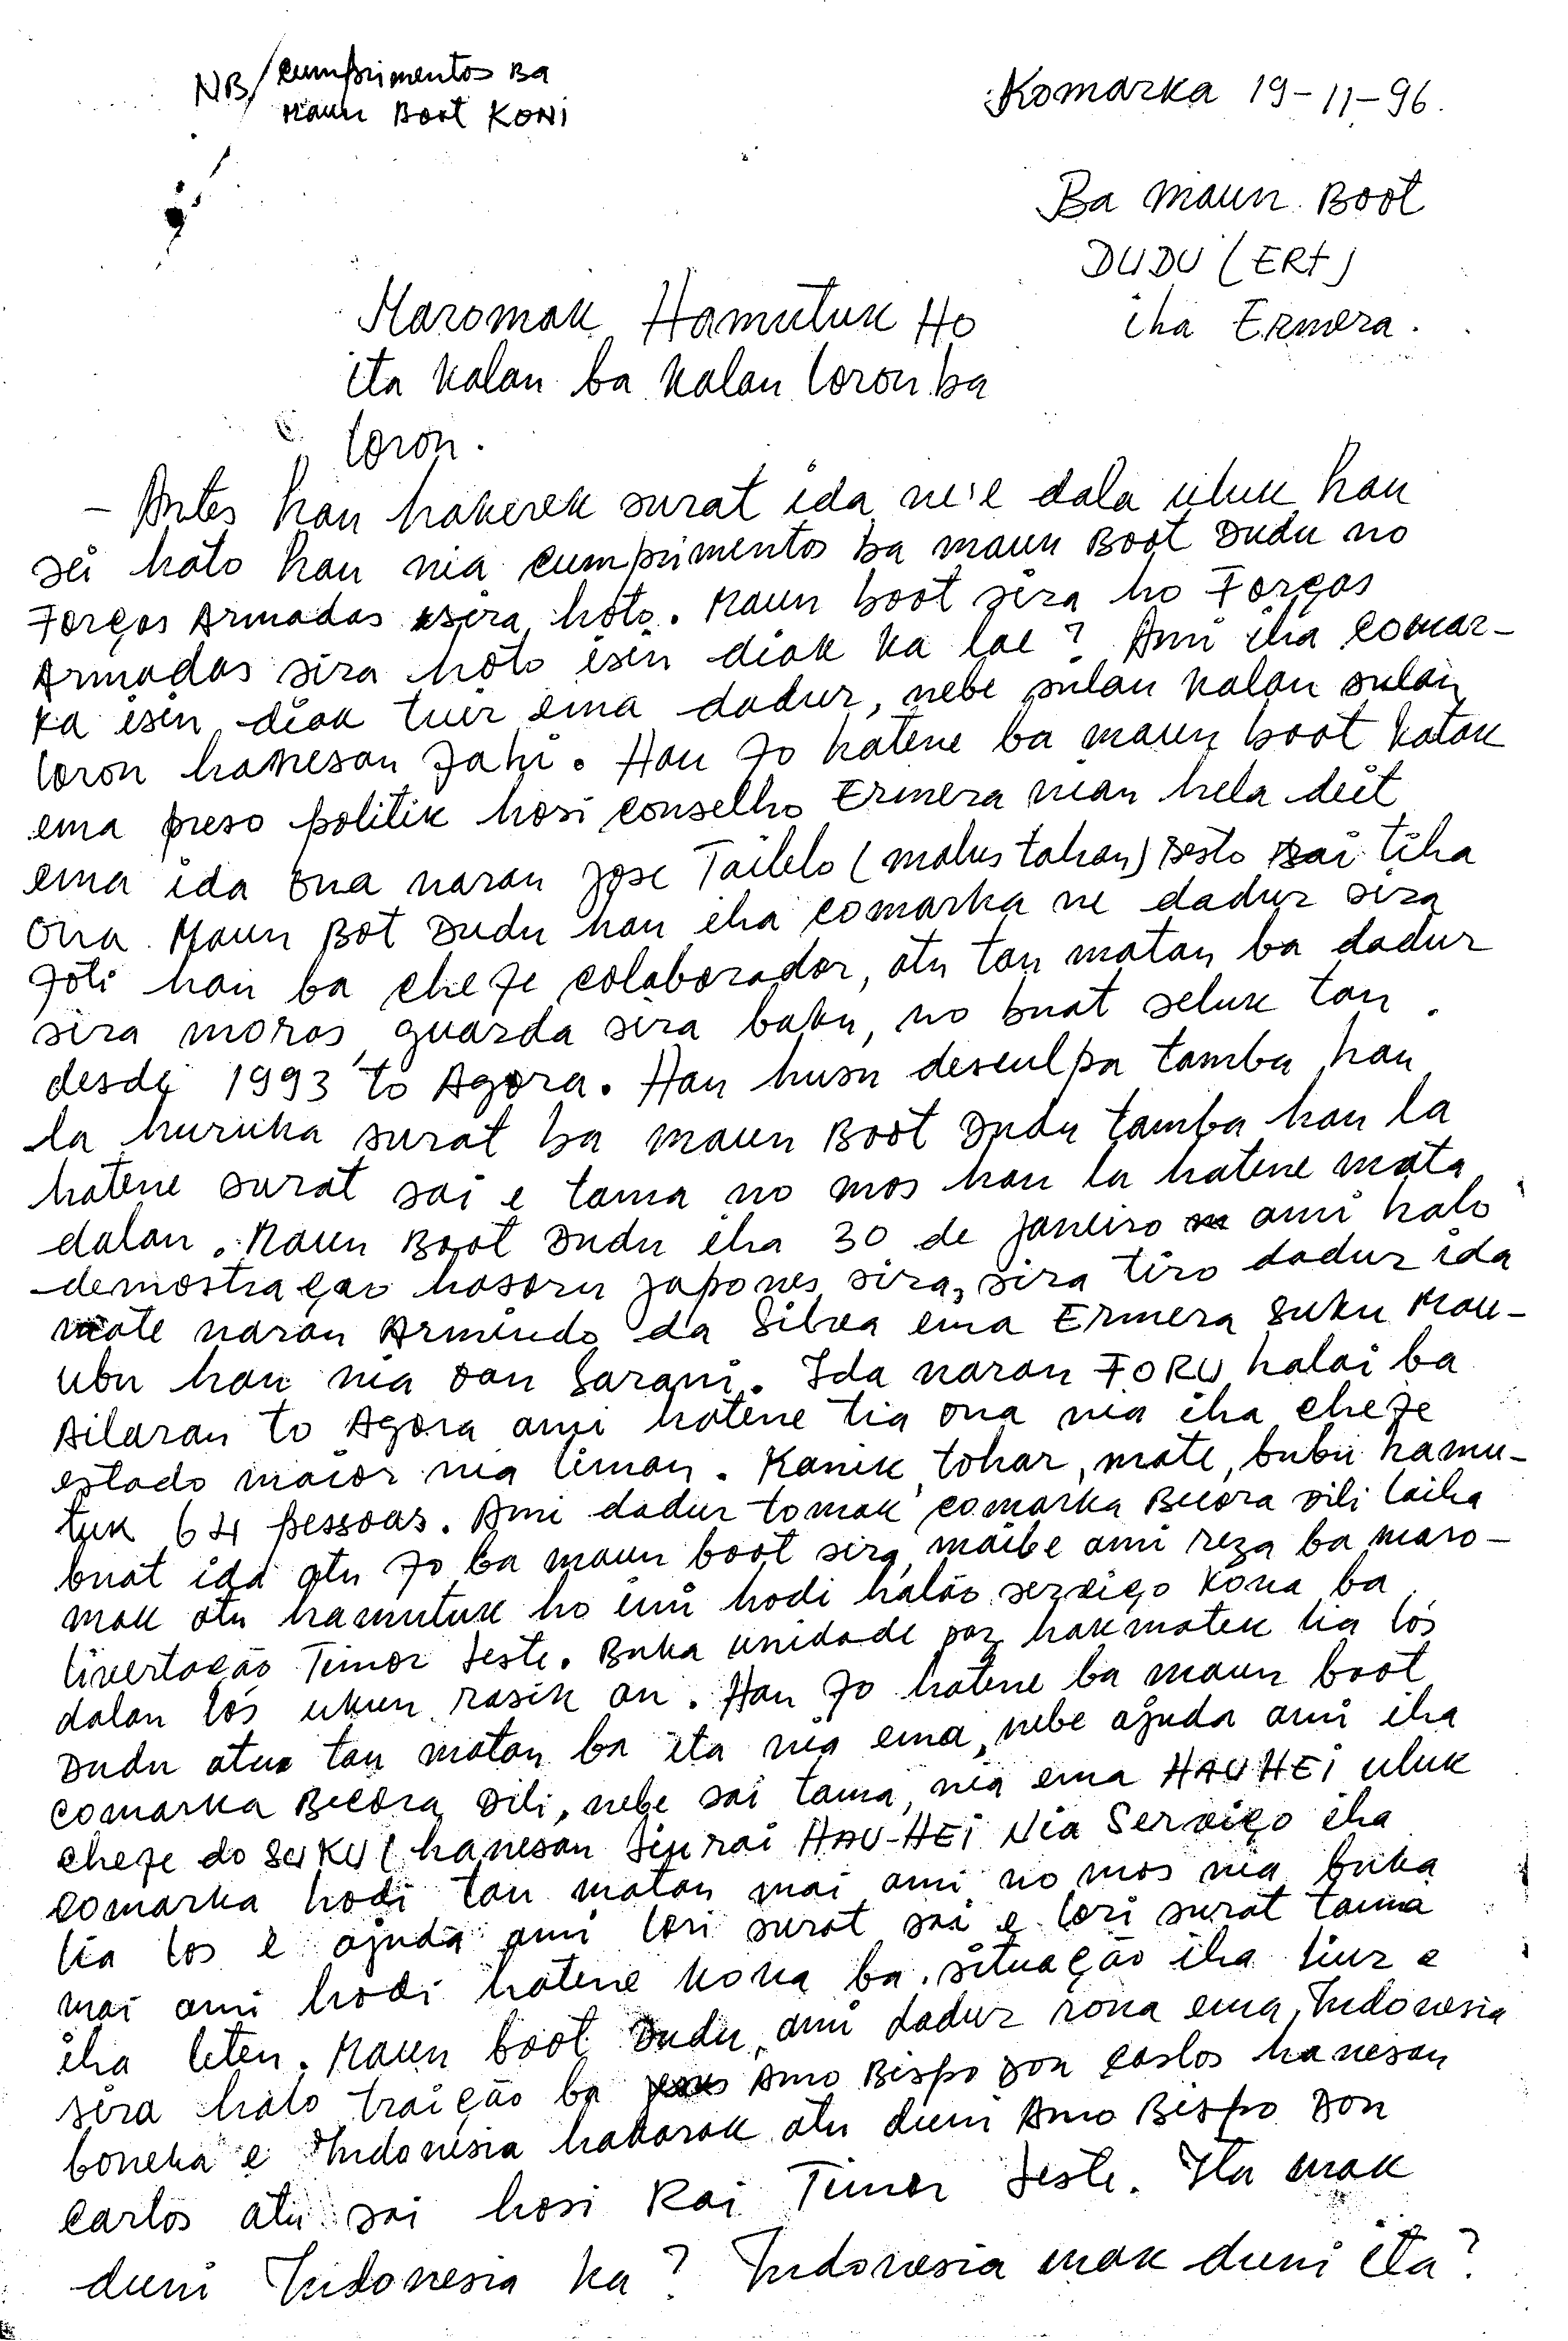 NB/ cumprimentos Ba
Maun Boot KONI
Komarka 19-11-96.
Ba Maun Boot
DUDU (ERt)
iha Ermera.
Maromak Hamutuk Ho
ita kalan ba kalan loron ba
loron.
- Antes hau hakerek surat ida ne'e dala uluk hau
sei hato hau nia cumprimentos ba maun Boot Dudu no
Forças Armadas sira hoto. Maun boot sira ho Forças
Armadas sira hoto isin diak ka lae? Ami iha comar-
ka isin diak tuir ema dadur, nebe sulan kalan sulan
loron hanesan Fahi. Hau fo hatene ba maun boot katak
ema preso politik hosi conselho Ermera nian hela deit
ema ida ona naran Jose Tailelo (malus tahan) Resto sai tiha
ona. Maun Bot Dudu hau iha comarka ne dadur sira
foti hau ba chefe colaborador, atu tau matan ba dadur
sira moras, guarda sira baku, no buat seluk tan.
desde 1993 to Agora. Hau husu desculpa tamba hau
la huruka surat ba maun Boot Dudu tamba hau la
hatene surat sai e tama no mos hau la hatene mata
dalan. Maun Boot Dudu iha 30 de janeiro ami halo
demostraçao hasoru japones sira, sira tiro dadur ida
mate naran Armindo da Silva ema Ermera suku Mau-
ubu hau nia oan Sarani. Ida naran FORU halai ba
Ailaran to Agora ami hatene tia ona nia iha chefe
estado maior nia liman. Kanik, tohar, mate, bubu hamu-
tuk 64 pessoas. Ami dadur tomak comarka Becora Dili laiha
buat ida atu fo ba maun boot sira, maibe ami reza ba maro-
mak atu hamutuk ho imi hodi halao serviço kona ba
livertação Timor Leste. Buka unidade paz hakmatek lia lós
dalan lós ukun rasik an. Hau fo hatene ba maun boot
Dudu atu tau matan ba ita nia ema, nebe ajuda ami iha
comarka Becora Dili, nebe sai tama, nia ema HAU HEI uluk
chefe do SUKU (hanesan Liurai HAU-HEI Nia Serviço iha
comarka hodi tau matan mai ami no mos nia buka
lia los e ajuda ami lori surat sai e lori surat tama
mai ami hodi hatene kona ba situação iha liur e
iha leten. Maun boot Dudu, ami dadur rona ema Indonesia
sira halo traição ba Amo Bispo Don Carlos hanesan
boneka e Indonésia hakarak atu duni Amo Bispo Don
Carlos atu sai hosi Rai Timor Leste. Ita mak
duni Indonesia ka? Indonesia mak duni ita?